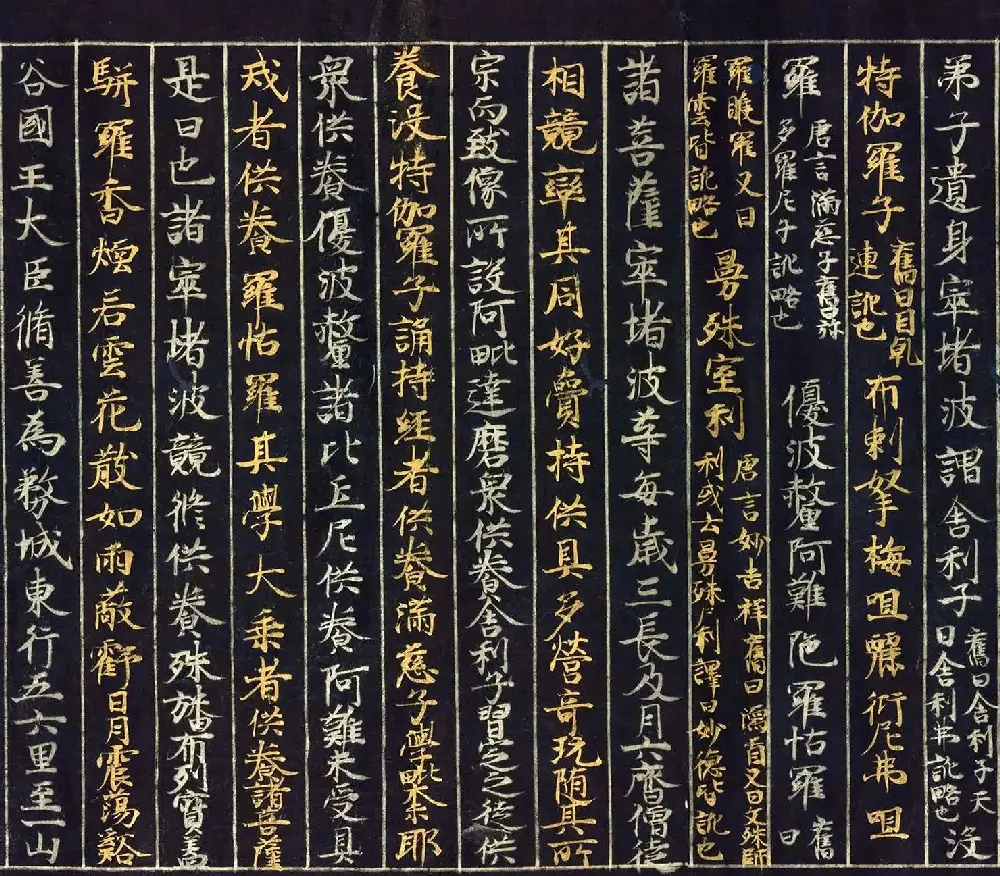 弟子遺身窣堵波謂舍利子舊曰舍利子天曰舍利弗訛略也沒
特伽羅子舊曰目乹連訛也布剌拏梅呾麗衍尼弗呾
羅唐言滿慈子舊曰弥多羅尼子訛略也優波釐阿難陁羅怙羅舊曰
羅睺羅又曰羅雲皆訛略也曼殊室利唐言妙吉祥舊曰濡首又曰文殊師利或言曼殊尸利譯曰妙德皆訛也
諸菩薩窣堵波等每歲三長及月六齋僧徒
相競率其同好賷持供具多營奇玩随其所
宗而致像所設阿毗達磨衆供養舍利子習定之徒供
養沒特伽羅子誦持經者供養滿慈子學毗奈耶
衆供養優波釐諸比丘尼供養阿難未受具
戒者供養羅怙羅其學大乘者供養諸菩薩
是日也諸窣堵波競修供養珠旛布列寶盖
駢羅香煙若雲花散如雨蔽虧日月震蕩谿
谷國王大臣脩善為務城東行五六里至一山